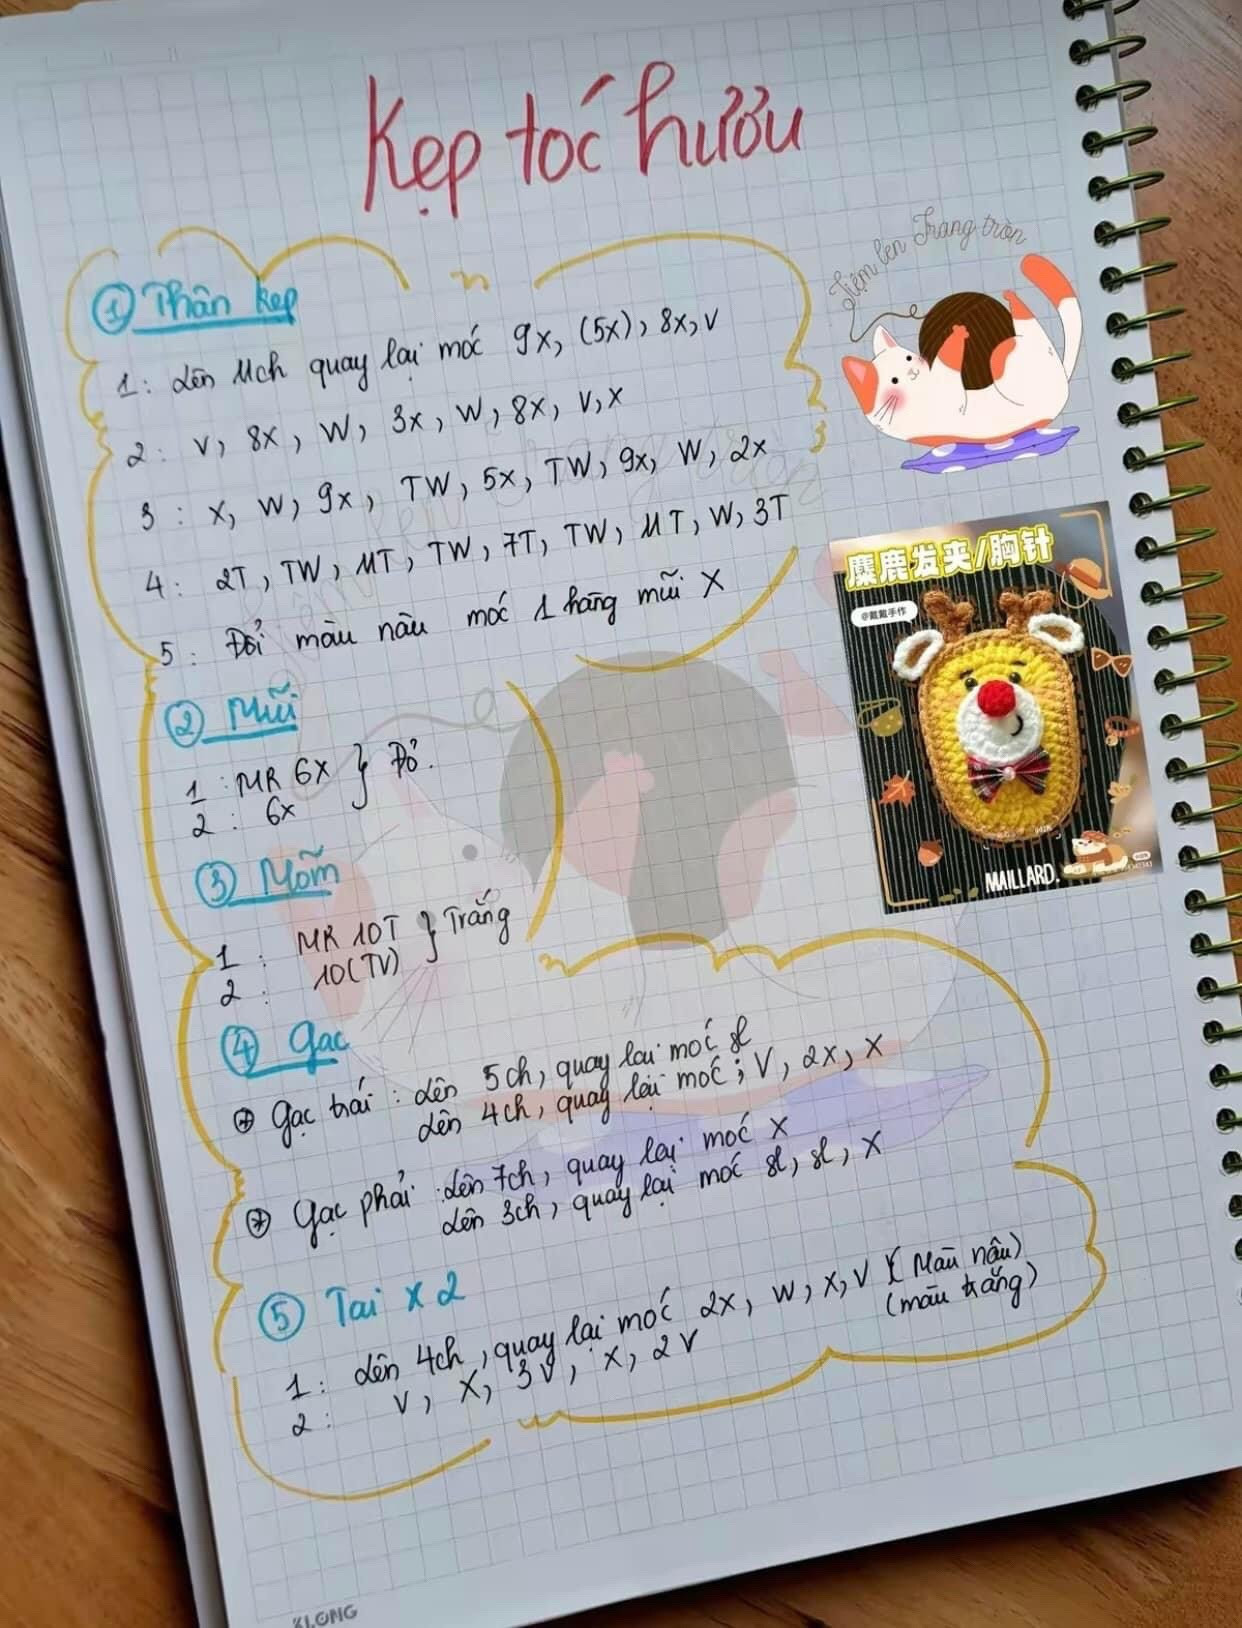 Kẹp tóc hươu
Tiệm len Trang tròn
① Thân kẹp
1: Lên 11ch quay lại móc 9x, (5x), 8x, V
2: V, 8x, W, 3x, W, 8x, V, X
3: X, W, 9x, TW, 5x, TW, 9x, W, 2x
4: 2T, TW, 11T, TW, 7T, TW, 11T, W, 3T
5: Đổi màu nâu móc 1 hàng mũi X
麋鹿发夹/胸针
@戴戴手作
MAILLARD.
② Mũi
1: MR 6X } Đỏ.
2: 6x
③ Mõm
1: MR 10T } Trắng
2: 10(TV)
④ Gạc
Gạc trái: Lên 5ch, quay lại móc sl
Lên 4ch, quay lại móc; V, 2x, X
Gạc phải: Lên 7ch, quay lại móc X
Lên 3ch, quay lại móc sl, sl, X
⑤ Tai x 2
1: Lên 4ch, quay lại móc 2x, W, X, V (Màu nâu)
2: V, X, 3V, X, 2V (màu trắng)
Tiệm len Trang tròn
KLONG